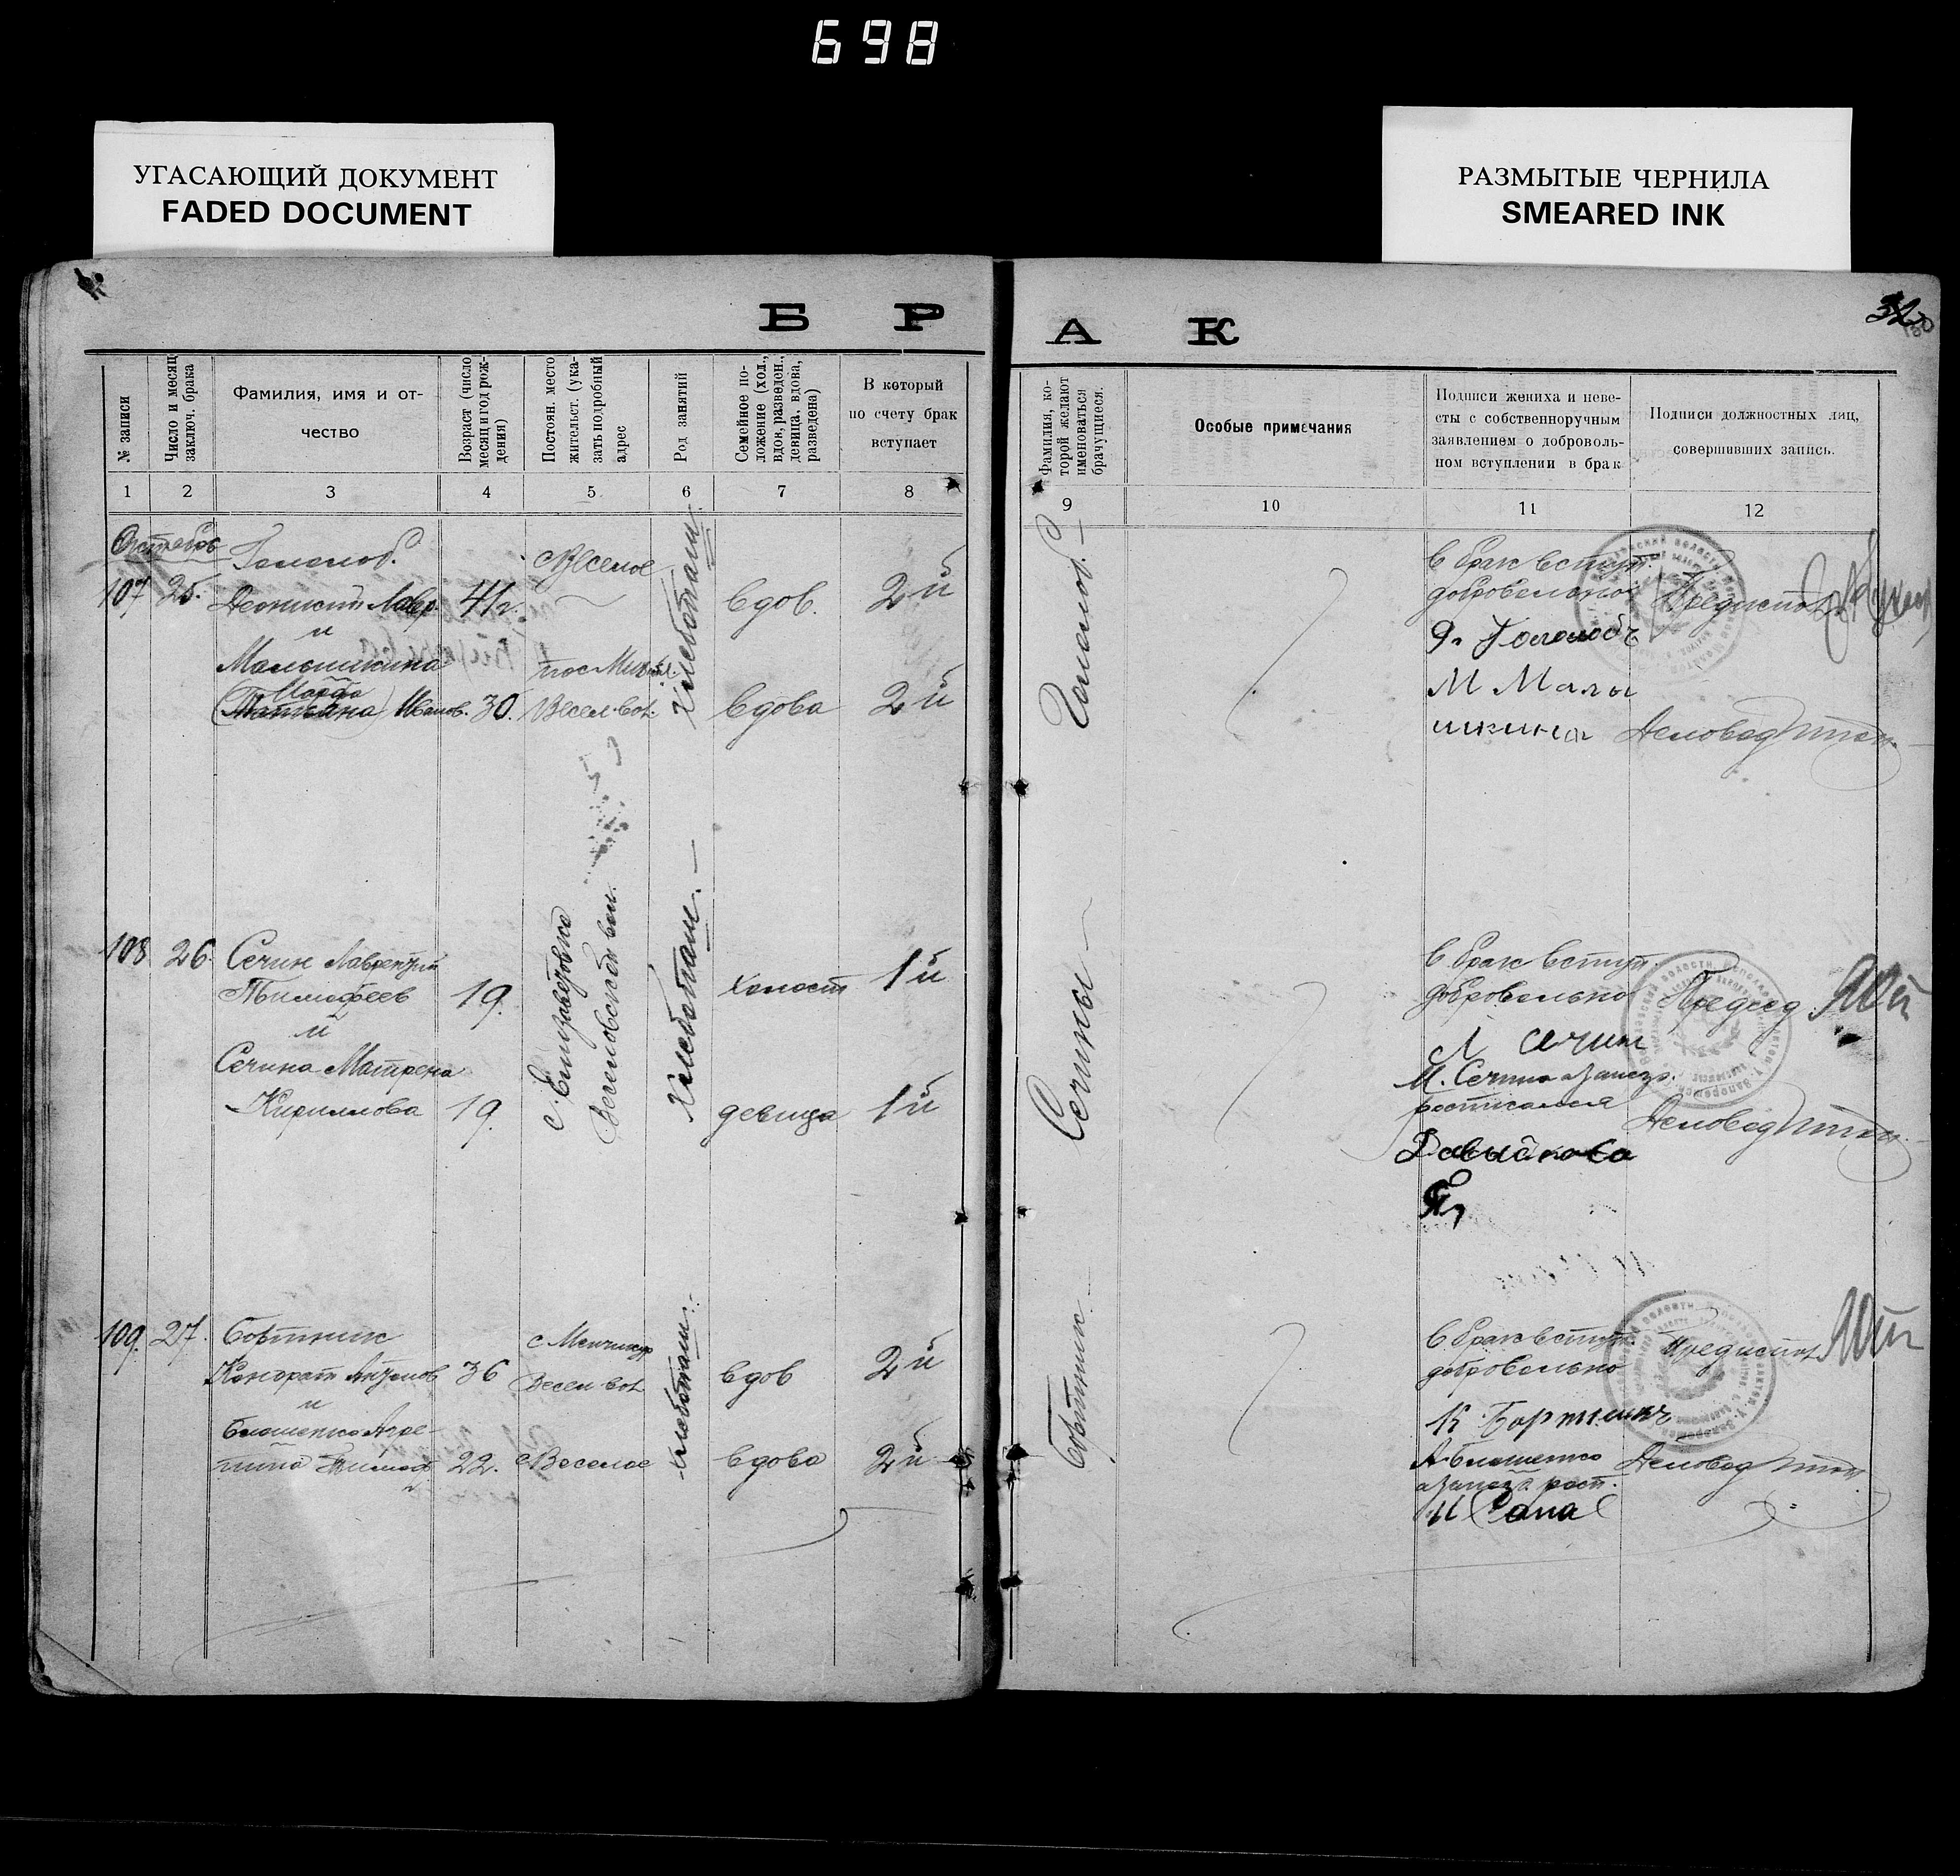 698
УГАСАЮЩИЙ ДОКУМЕНТ
FADED DOCUMENT
РАЗМЫТЫЕ ЧЕРНИЛА
SMEARED INK
Б Р А К
32
№ записи
Число и месяц
заключ. брака
Фамилия, имя и от-
чество
Возраст (число
месяц и год рож-
дения)
Постоян. место
жительст. (ука-
зать подробный
адрес
Род занятий
Семейное по-
ложение (хол.,
вдов, разведен.,
девица, вдова,
разведена)
В который
по счету брак
вступает
Фамилия, ко-
торой желают
именоваться
брачущиеся.
Особые примечания
Подписи жениха и неве-
сты с собственноручным
заявлением о доброволь-
ном вступлении в брак
Подписи должностных лиц,
совершивших запись.
1 2 3 4 5 6 7 8 9 10 11 12
107 25.
Леонтий Лавр. 41 г.
и
Малышкина
Марфа
(Татьяна) Иванов. 30.
с Веселое
Весел. вол.
Хлебопаш.
вдов. 2й
вдова 2й
Гололоб.
В брак вступ.
добровольно
Я. Гололобъ
М Малы
шкина
Деловод
108 26
Сечин Лаврентий
Тимофеев 19.
и
Сечина Матрена
Кирилова 19.
с. Елизаветовка
Веселовской вол.
Хлебопаш.
холост 1й
девица 1й
Сечины
В брак вступ.
добровольно
Л Сечин
М. Сечина а за неё
росписался
Председ.
Деловод
109. 27.
Бортник
Кондрат Антонов 36
и
22.
Весел. вол.
с Веселое
хлебопаш.
вдов 2й
вдова 2й
Бортник
В брак вступ.
добровольно
К. Бортникъ
а за неё расп.
Деловод